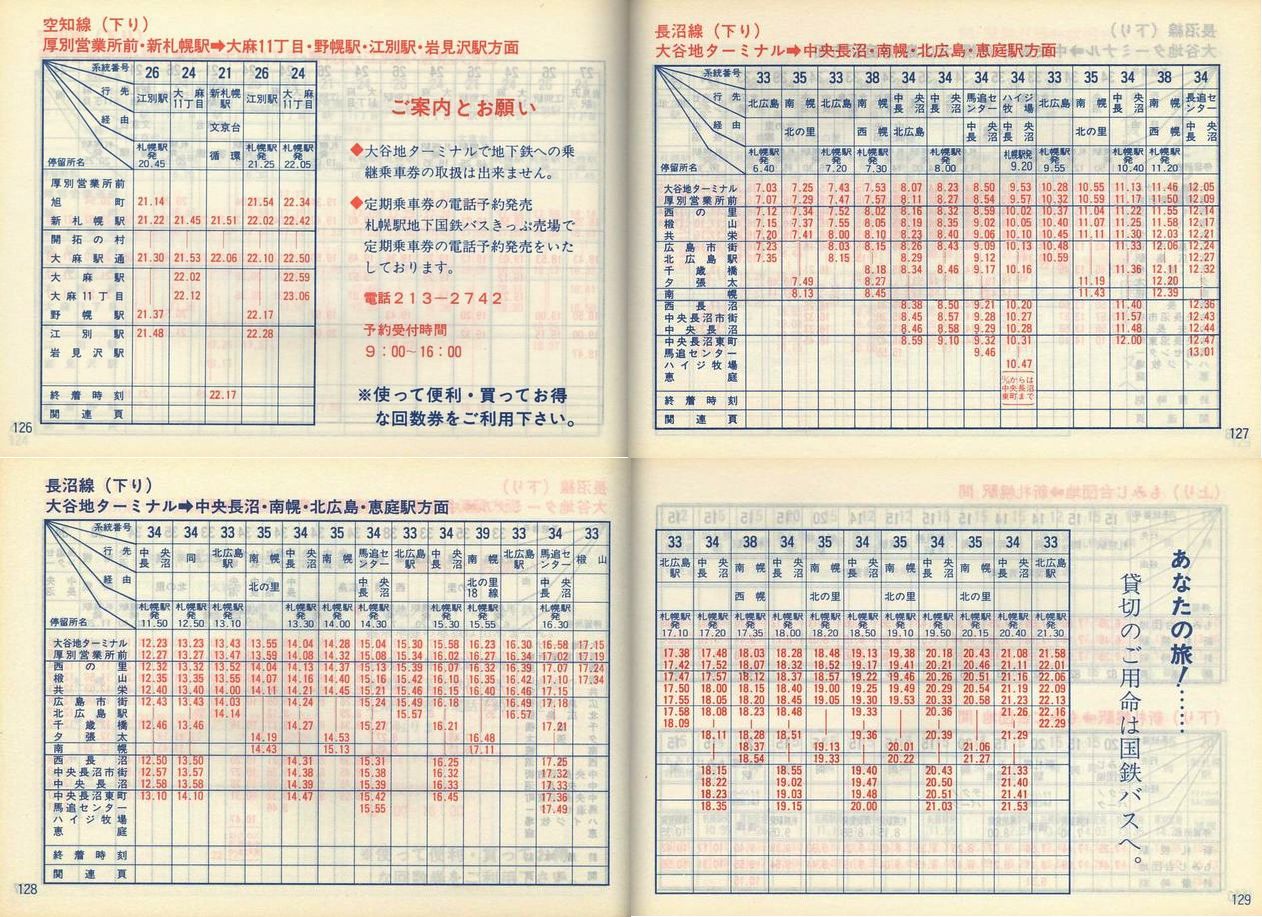 空知線（下り）
厚別営業所前・新札幌駅➡大麻11丁目・野幌駅・江別駅・岩見沢駅方面
系統番号 26 24 21 26 24
行先 江別駅 大麻11丁目 新札幌駅 江別駅 大麻11丁目
経由 文京台
停留所名 札幌駅発20.45 循環 札幌駅発21.25 札幌駅発22.05
厚別営業所前
旭町 21.14 21.54 22.34
新札幌駅 21.22 21.45 21.51 22.02 22.42
開拓の村
大麻駅通 21.30 21.53 22.06 22.10 22.50
大麻駅 22.02 22.59
大麻11丁目 22.12 23.06
野幌駅 21.37 22.17
江別駅 21.48 22.28
岩見沢駅
終着時刻 22.17
関連頁
ご案内とお願い
◆大谷地ターミナルで地下鉄への乗
継乗車券の取扱は出来ません。
◆定期乗車券の電話予約発売
札幌駅地下国鉄バスきっぷ売場で
定期乗車券の電話予約発売をいた
しております。
電話213−2742
予約受付時間
9：00〜16：00
※使って便利・買ってお得
な回数券をご利用下さい。
126
長沼線（下り）
大谷地ターミナル➡中央長沼・南幌・北広島・恵庭駅方面
系統番号 33 35 33 38 34 34 34 34 33 35 34 38 34
行先 北広島 南幌 北広島 南幌 中央長沼 中央長沼 馬追センター ハイジ牧場 北広島 南幌 中央長沼 南幌 長追センター
経由 北の里 西幌 北広島 中央長沼 中央長沼 北の里 西幌 中央長沼
停留所名 札幌駅発6.40 札幌駅発7.20 札幌駅発7.30 札幌駅発8.00 札幌駅発9.20 札幌駅発9.55 札幌駅発10.40 札幌駅発11.20
大谷地ターミナル 7.03 7.25 7.43 7.53 8.07 8.23 8.50 9.53 10.28 10.55 11.13 11.46 12.05
厚別営業所前 7.07 7.29 7.47 7.57 8.11 8.27 8.54 9.57 10.32 10.59 11.17 11.50 12.09
西の里 7.12 7.34 7.52 8.02 8.16 8.32 8.59 10.02 10.37 11.04 11.22 11.55 12.14
椴山 7.15 7.37 7.55 8.05 8.19 8.35 9.02 10.05 10.40 11.07 11.25 11.58 12.17
共栄 7.20 7.41 8.00 8.10 8.23 8.40 9.06 10.10 10.45 11.11 11.30 12.03 12.21
広島市街 7.23 8.03 8.15 8.26 8.43 9.09 10.13 10.48 11.33 12.06 12.24
北広島駅 7.35 8.15 8.29 9.12 10.59 12.27
千歳橋 8.18 8.34 8.46 9.17 10.16 11.36 12.11 12.32
夕張太 7.49 8.27 11.19 12.20
南幌 8.13 8.45 11.43 12.39
西長沼 8.38 8.50 9.21 10.20 11.40 12.36
中央長沼市街 8.45 8.57 9.28 10.27 11.57 12.43
中央長沼 8.46 8.58 9.29 10.28 11.48 12.44
中央長沼東町 8.59 9.10 9.32 10.31 12.00 12.47
馬追センター 9.46 13.01
ハイジ牧場 10.47
恵庭
からは中央長沼東町まで
終着時刻
関連頁
127
長沼線（下り）
大谷地ターミナル➡中央長沼・南幌・北広島・恵庭駅方面
系統番号 34 34 33 35 34 35 34 33 34 39 33 34 33
行先 中央長沼 同 北広島駅 南幌 中央長沼 南幌 馬追センター 北広島駅 中央長沼 南幌 北広島駅 馬追センター 椴山
経由 北の里 中央長沼 北の里18線 中央長沼
停留所名 札幌駅発11.50 札幌駅発12.50 札幌駅発13.10 札幌駅発13.30 札幌駅発14.00 札幌駅発14.30 札幌駅発15.30 札幌駅発15.55 札幌駅発16.30
大谷地ターミナル 12.23 13.23 13.43 13.55 14.04 14.28 15.04 15.30 15.58 16.23 16.30 16.58 17.15
厚別営業所前 12.27 13.27 13.47 13.59 14.08 14.32 15.08 15.34 16.02 16.27 16.34 17.02 17.19
西の里 12.32 13.32 13.52 14.04 14.13 14.37 15.13 15.39 16.07 16.32 16.39 17.07 17.24
椴山 12.35 13.35 13.55 14.07 14.16 14.40 15.16 15.42 16.10 16.35 16.42 17.10 17.34
共栄 12.40 13.40 14.00 14.11 14.21 14.45 15.21 15.46 16.15 16.40 16.46 17.15
広島市街 12.43 13.43 14.03 14.24 15.24 15.49 16.18 16.49 17.18
北広島駅 14.14 15.57 16.57
千歳橋 12.46 13.46 14.27 15.27 16.21 17.21
夕張太 14.19 14.53 16.48
南幌 14.43 15.13 17.11
西長沼 12.50 13.50 14.31 15.31 16.25 17.25
中央長沼市街 12.57 13.57 14.38 15.38 16.32 17.32
中央長沼 12.58 13.58 14.39 15.39 16.33 17.33
中央長沼東町 13.10 14.10 14.47 15.42 16.45 17.36
馬追センター 15.55 17.49
ハイジ牧場
恵庭
終着時刻
関連頁
128
33 34 38 34 35 34 35 34 35 34 33
北広島駅 中央長沼 南幌 中央長沼 南幌 中央長沼 南幌 中央長沼 南幌 中央長沼 北広島駅
西幌 北の里 北の里 北の里
札幌駅発17.10 札幌駅発17.20 札幌駅発17.35 札幌駅発18.00 札幌駅発18.20 札幌駅発18.50 札幌駅発19.10 札幌駅発19.50 札幌駅発20.15 札幌駅発20.40 札幌駅発21.30
17.38 17.48 18.03 18.28 18.48 19.13 19.38 20.18 20.43 21.08 21.58
17.42 17.52 18.07 18.32 18.52 19.17 19.41 20.21 20.46 21.11 22.01
17.47 17.57 18.12 18.37 18.57 19.22 19.46 20.26 20.51 21.16 22.06
17.50 18.00 18.15 18.40 19.00 19.25 19.49 20.29 20.54 21.19 22.09
17.55 18.05 18.20 18.45 19.05 19.30 19.53 20.33 20.58 21.23 22.13
17.58 18.08 18.23 18.48 19.33 20.36 21.26 22.16
18.09 22.29
18.11 18.28 18.51 19.36 20.39 21.29
18.37 19.13 20.01 21.06
18.54 19.33 20.22 21.27
18.15 18.55 19.40 20.43 21.33
18.22 19.02 19.47 20.50 21.40
18.23 19.03 19.48 20.51 21.41
18.35 19.15 20.00 21.03 21.53
あなたの旅！……
貸切のご用命は国鉄バスへ。
129